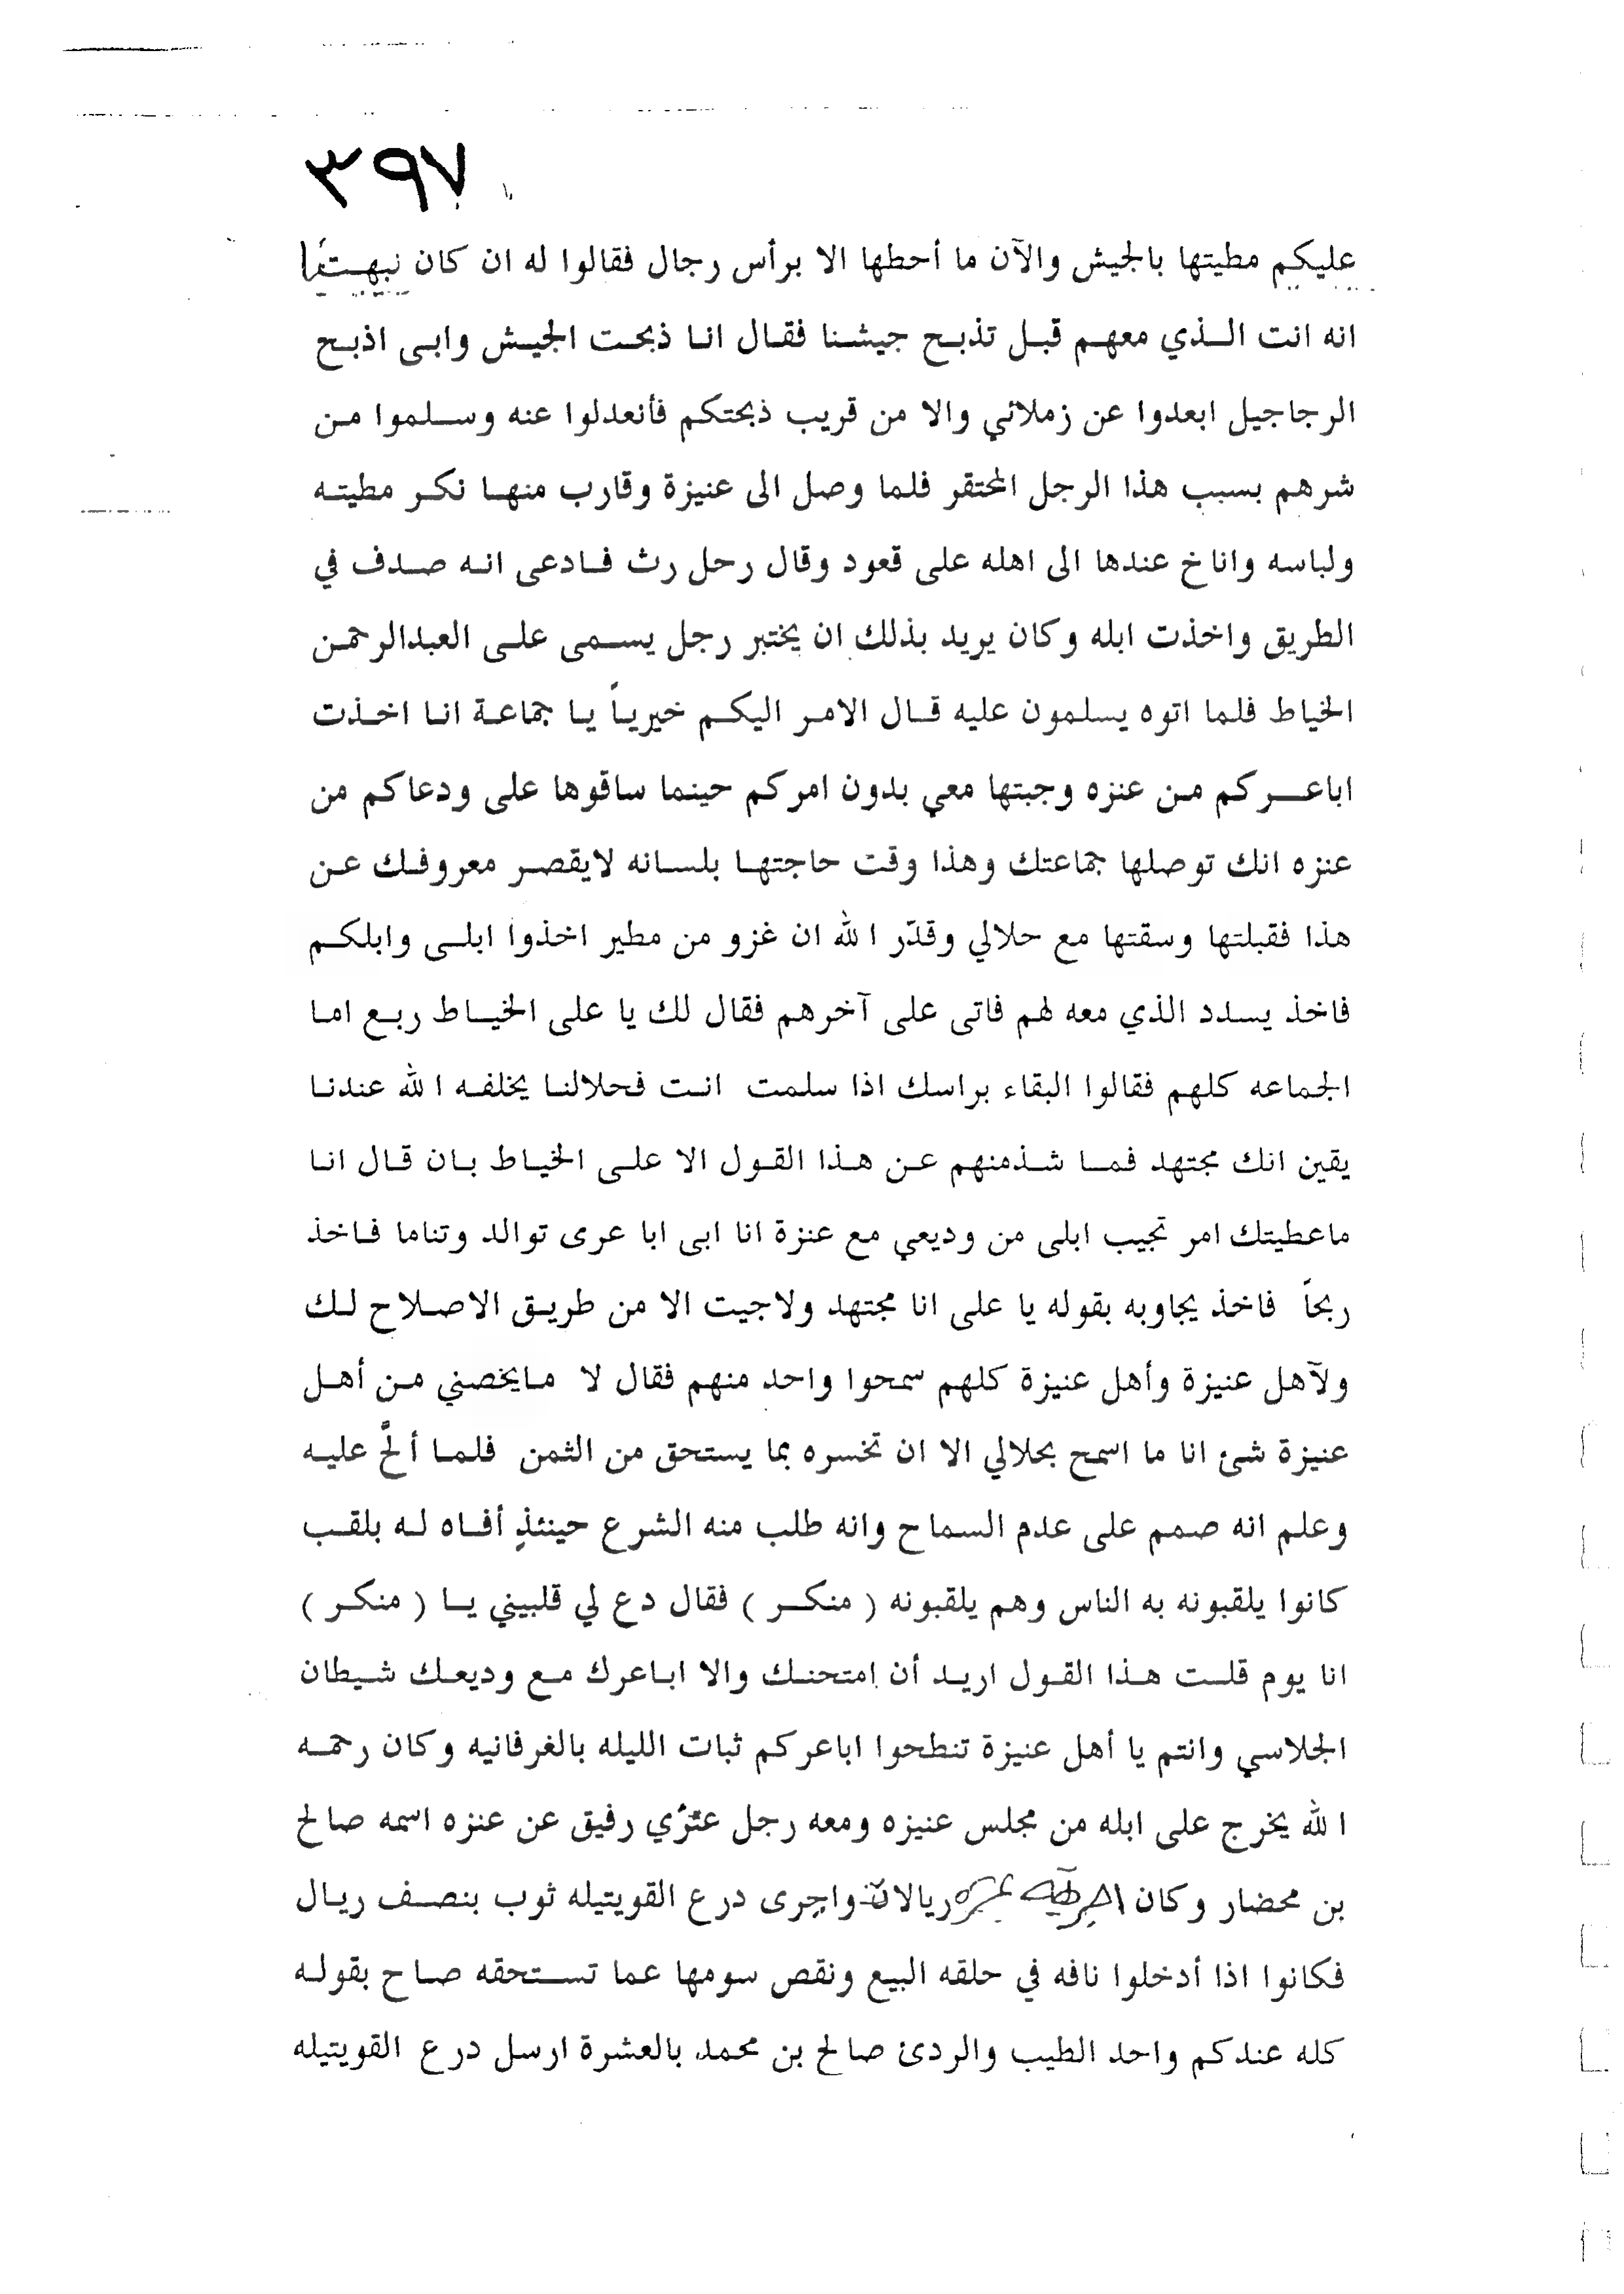 ٣٩٧
عليكم مطيتها بالجيش والآن ما أحطها الا برأس رجال فقالوا له ان كان نبهتنا
انه انت الذي معهم قبل تذبح جيشنا فقال انا ذبحت الجيش وابى اذبح
الرجاجيل ابعدوا عن زملائي والا من قريب ذبحتكم فأنعدلوا عنه وسلموا من
شرهم بسبب هذا الرجل المحتقر فلما وصل الى عنيزة وقارب منها نكر مطيته
ولباسه واناخ عندها الى اهله على قعود وقال رحل رث فادعى انه صدف في
الطريق واخذت ابله وكان يريد بذلك ان يختبر رجل يسمى على العبدالرحمن
الخياط فلما اتوه يسلمون عليه قال الامر اليكم خيرياً يا جماعة انا اخذت
اباعركم من عنزه وجبتها معي بدون امركم حينما ساقوها على ودعاكم من
عنزه انك توصلها جماعتك وهذا وقت حاجتها بلسانه لايقصر معروفك عن
هذا فقبلتها وسقتها مع حلالي وقدّر الله ان غزو من مطير اخذوا ابلى وابلكم
فاخذ يسدد الذي معه لهم فاتى على آخرهم فقال لك يا على الخياط ربع اما
الجماعه كلهم فقالوا البقاء براسك اذا سلمت انت فحلالنا يخلفه الله عندنا
يقين انك مجتهد فما شذمنهم عن هذا القول الا على الخياط بان قال انا
ماعطيتك امر تجيب ابلى من وديعي مع عنزة انا ابى ابا عرى توالد وتناما فاخذ
ربحاً فاخذ يجاوبه بقوله يا على انا مجتهد ولاجيت الا من طريق الاصلاح لك
ولآهل عنيزة وأهل عنيزة كلهم سمحوا واحد منهم فقال لا مايخصني من أهل
عنيزة شئ انا ما اسمح بحلالي الا ان تخسره بما يستحق من الثمن فلما ألحَّ عليه
وعلم انه صمم على عدم السماح وانه طلب منه الشرع حينئذٍ أفاه له بلقب
كانوا يلقبونه به الناس وهم يلقبونه ( منكر ) فقال دع لي قلبيني يا ( منكر )
انا يوم قلت هذا القول اريد أن امتحنك والا اباعرك مع وديعك شيطان
الجلاسي وانتم يا أهل عنيزة تنطحوا اباعركم ثبات الليله بالغرفانيه وكان رحمه
الله يخرج على ابله من مجلس عنيزه ومعه رجل عنزي رفيق عن عنزه اسمه صالح
بن محضار وكان ريالات واجرى درع القويتيله ثوب بنصف ريال
فكانوا اذا أدخلوا نافه في حلقه البيع ونقص سومها عما تستحقه صاح بقوله
كله عندكم واحد الطيب والردئ صالح بن محمد بالعشرة ارسل درع القويتيله